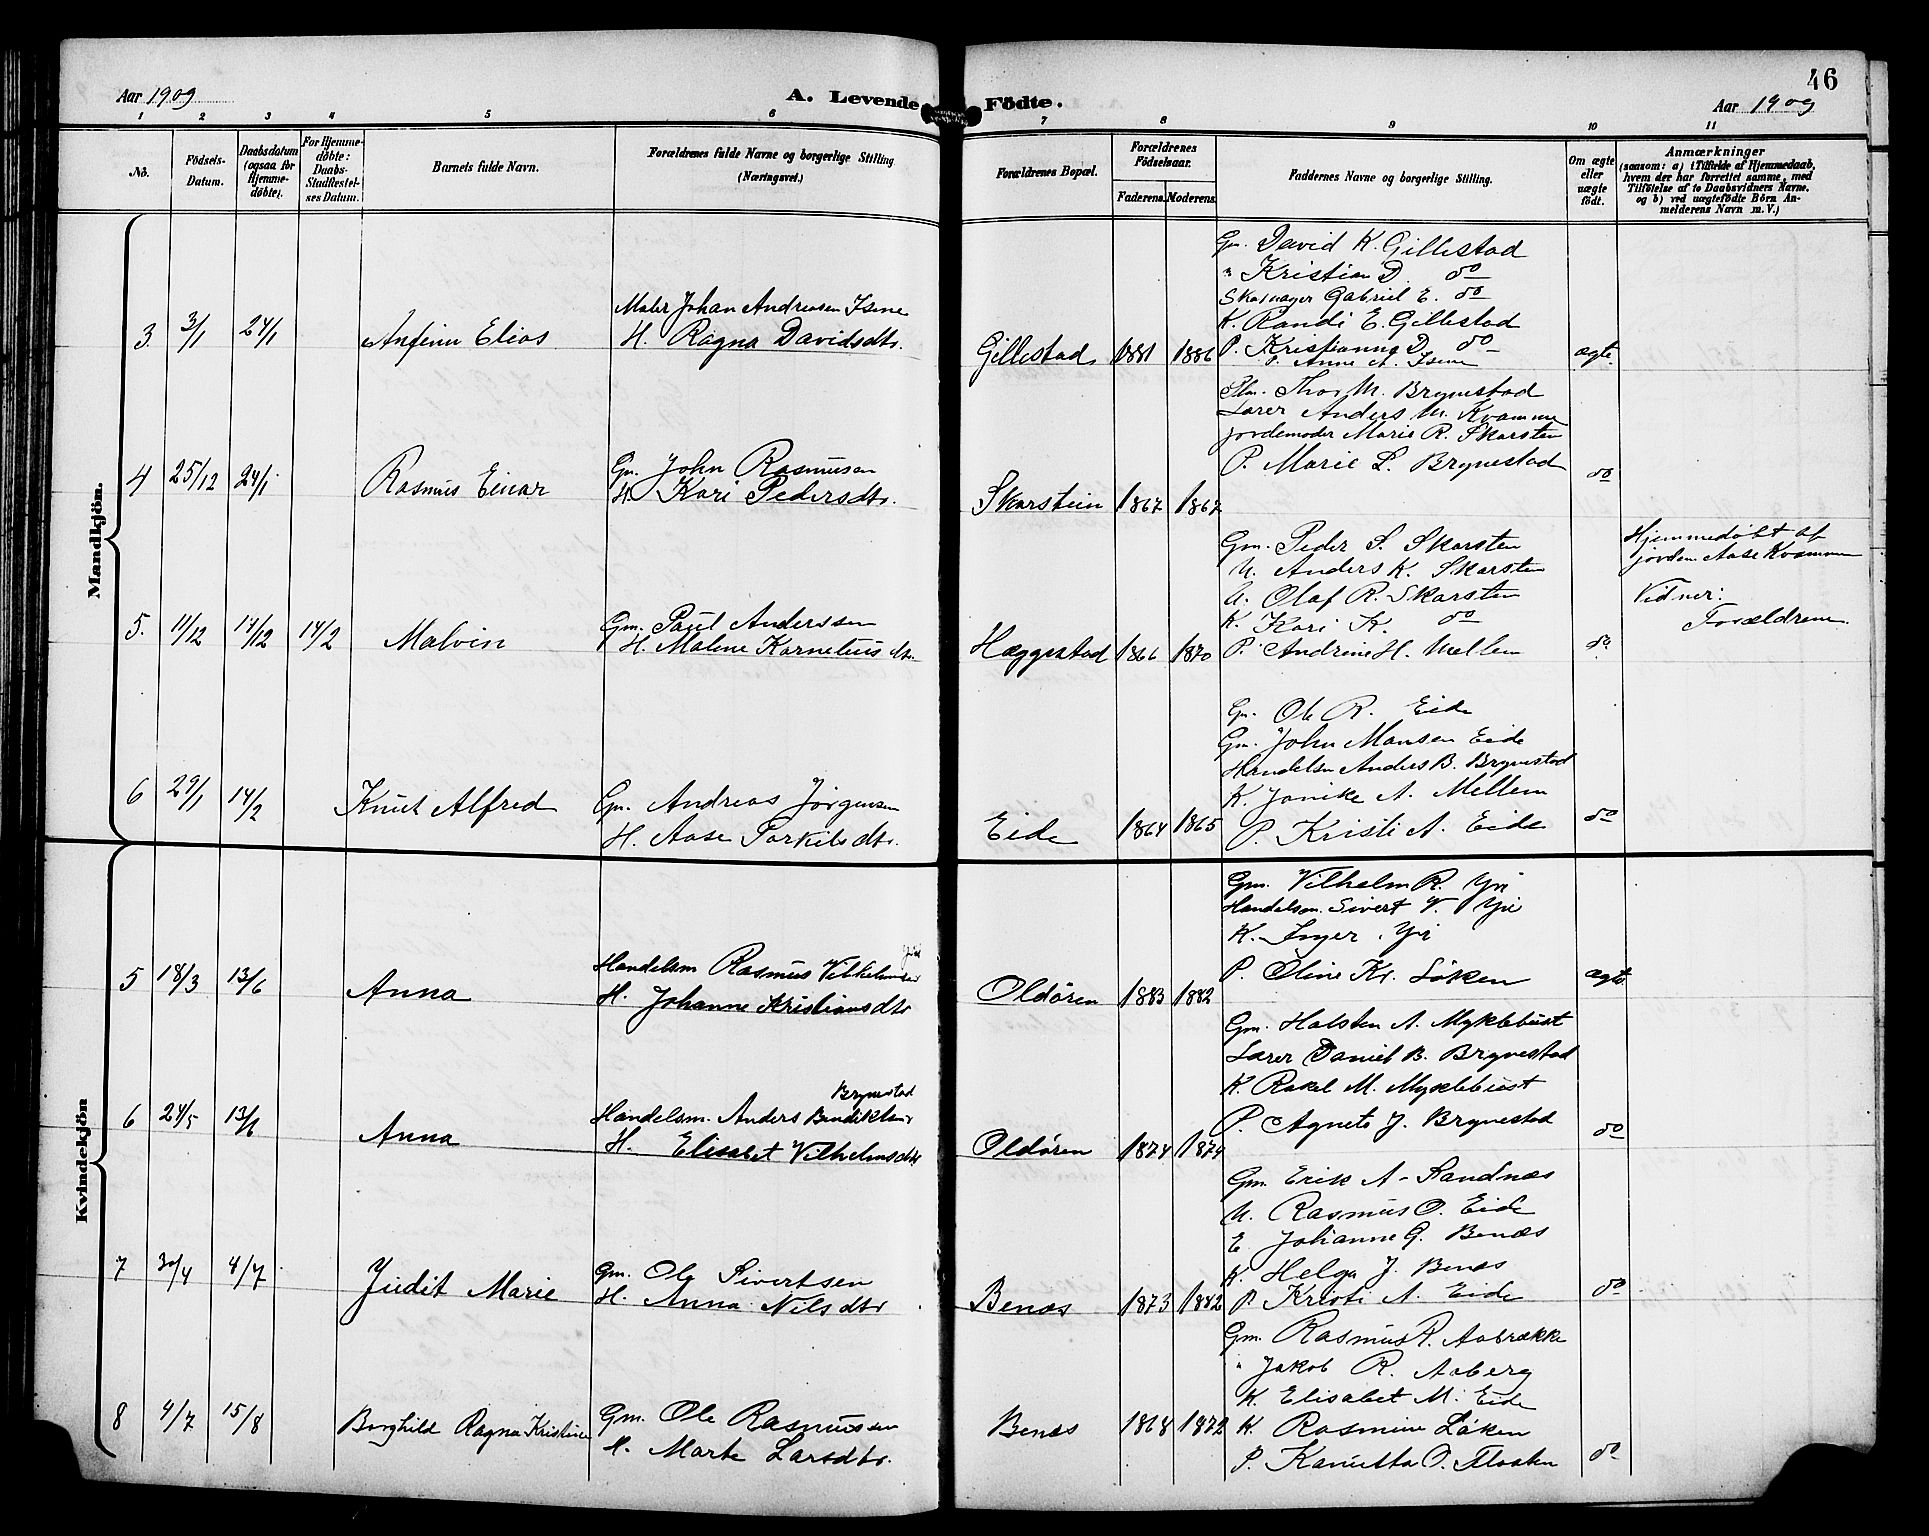 46
Aar 1909
A. Levende Födte.
Aar 1909
1 2 3 4 5 6 7 8 9 10 11
No.
Födsels-Datum.
Daabsdatum (ogsaa for Hjemmedöbte).
For Hjemmedöbte: Daabs-Stadfæstelses Datum.
Barnets fulde Navn.
Forældrenes fulde Navne og borgerlige Stilling (Næringsvei.)
Forældrenes Bopæl.
Forældrenes Födselsaar.
Faderens. Moderens.
Faddernes Navne og borgerlige Stilling.
Om ægte eller uægte födt.
Anmærkninger
(saasom: a) i Tilfælde af Hjemmedaab, hvem der har forrettet samme, med Tilföielse af to Daabsvidners Navne. og b) ved uægtefödte Börn Anmelderens Navn m. V.)
Mandkjön.
3 3/1 24/1
Anfinn Elias
Maler Johan Andreasen Isene
H. Ragna Davidsdtr.
Gillestad 1881 1886
Gm. David K. Gillestad
" Kristian D. do
Skomager Gabriel E. do
K. Randi E. Gillestad
P. Kristianna D. do
P. Anne A. Isene
ægte
4 25/12 24/1
Rasmus Einar
Gm. John Rasmusen
H. Kari Pedersdtr.
Skarstein 1867 1867
Thor M. Brynestad
Lærer Anders M. Kvamme
jordemoder Marie R. Skarsten
P. Marie L. Brynestad
do
5. 11/12 14/12 14/2
Malvin
Gm. Paul Anderssen
H. Malene Kornelius dtr.
Hæggestad 1866 1870
Gm. Peder S. Skarsten
U. Anders K. Skarsten
U. Olaf R. Skarsten
K. Kari K. do
P. Andrine H. Mellem
do
Hjemmedøbt af
jordm. Aase Kvamme
Vidner:
Forældrene.
6 29/1 14/2
Knut Alfred
Gm. Andreas Jørgensen
H. Aase Torkilsdtr.
Eide 1864 1865
Gm. Ole R. Eide
Gm. John Monsen Eide
Handelsm Anders B. Brynestad
K. Jonike A. Mellem
P. Kristi A. Eide
do
Kvindekjön
5 18/3 13/6
Anna
Handelsm Rasmus Vilhelmsen
H. Johanne Kristiansdtr
Oldøren 1883 1882
Gm. Vilhelm R. Yri
Handelsm. Sivert V. Yri
K. Inger Yri
P. Oline Kr. Løken
ægte
6 24/5 13/6
Anna
Brynestad
Handelsm. Anders Bendiktsen
H. Elisabet Vilhelmsdtr
Oldøren 1874 1874
Gm. Halsten A. Myklebust
Lærer Daniel B. Brynestad
K. Rakel M. Myklebust
P. Agnete J. Brynestad
do
7 30/4 4/7
Judit Marie
Gm. Ole Sivertsen
H. Anna Nilsdtr.
Benæs 1873 1882
Gm. Erik A. Sandnæs
U. Rasmus O. Eide
E Johanne G. Benæs
K. Helga J. Benæs
P. Kristi A. Eide
do
8 4/7 15/8
Borghild Ragna Kristine
Gm. Ole Rasmussen
H. Marte Larsdtr.
Benæs 1868 1872
Gm. Rasmus R. Aabrække
" Jakob R. Aaberg
K. Elisabet M. Eide
K. Rasmine Løken
P. Kanutta O. Floaten
do